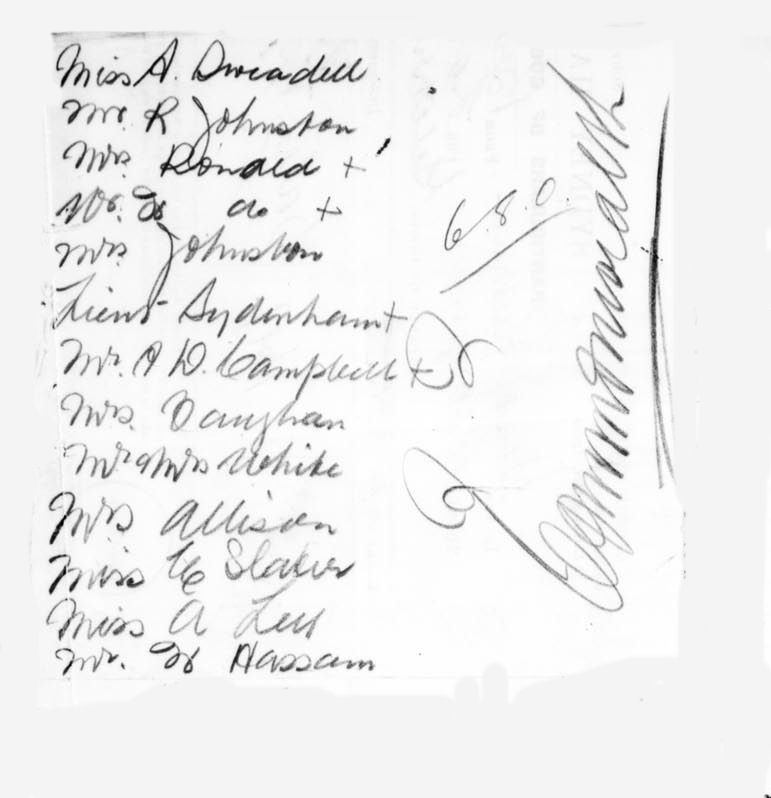 Miss A. Dwiadell
Mr. R Johnston
Mrs. Ronald +
Mr. W do +
Mrs Johnston
Lieut Sydenham +
Mr. A D. Campbell +
Mrs. Vaughan
Mr & Mrs White
Mrs Allison
Miss E Slater
Miss A
Mr. W Hassam
6.8.0.
Commonwealth